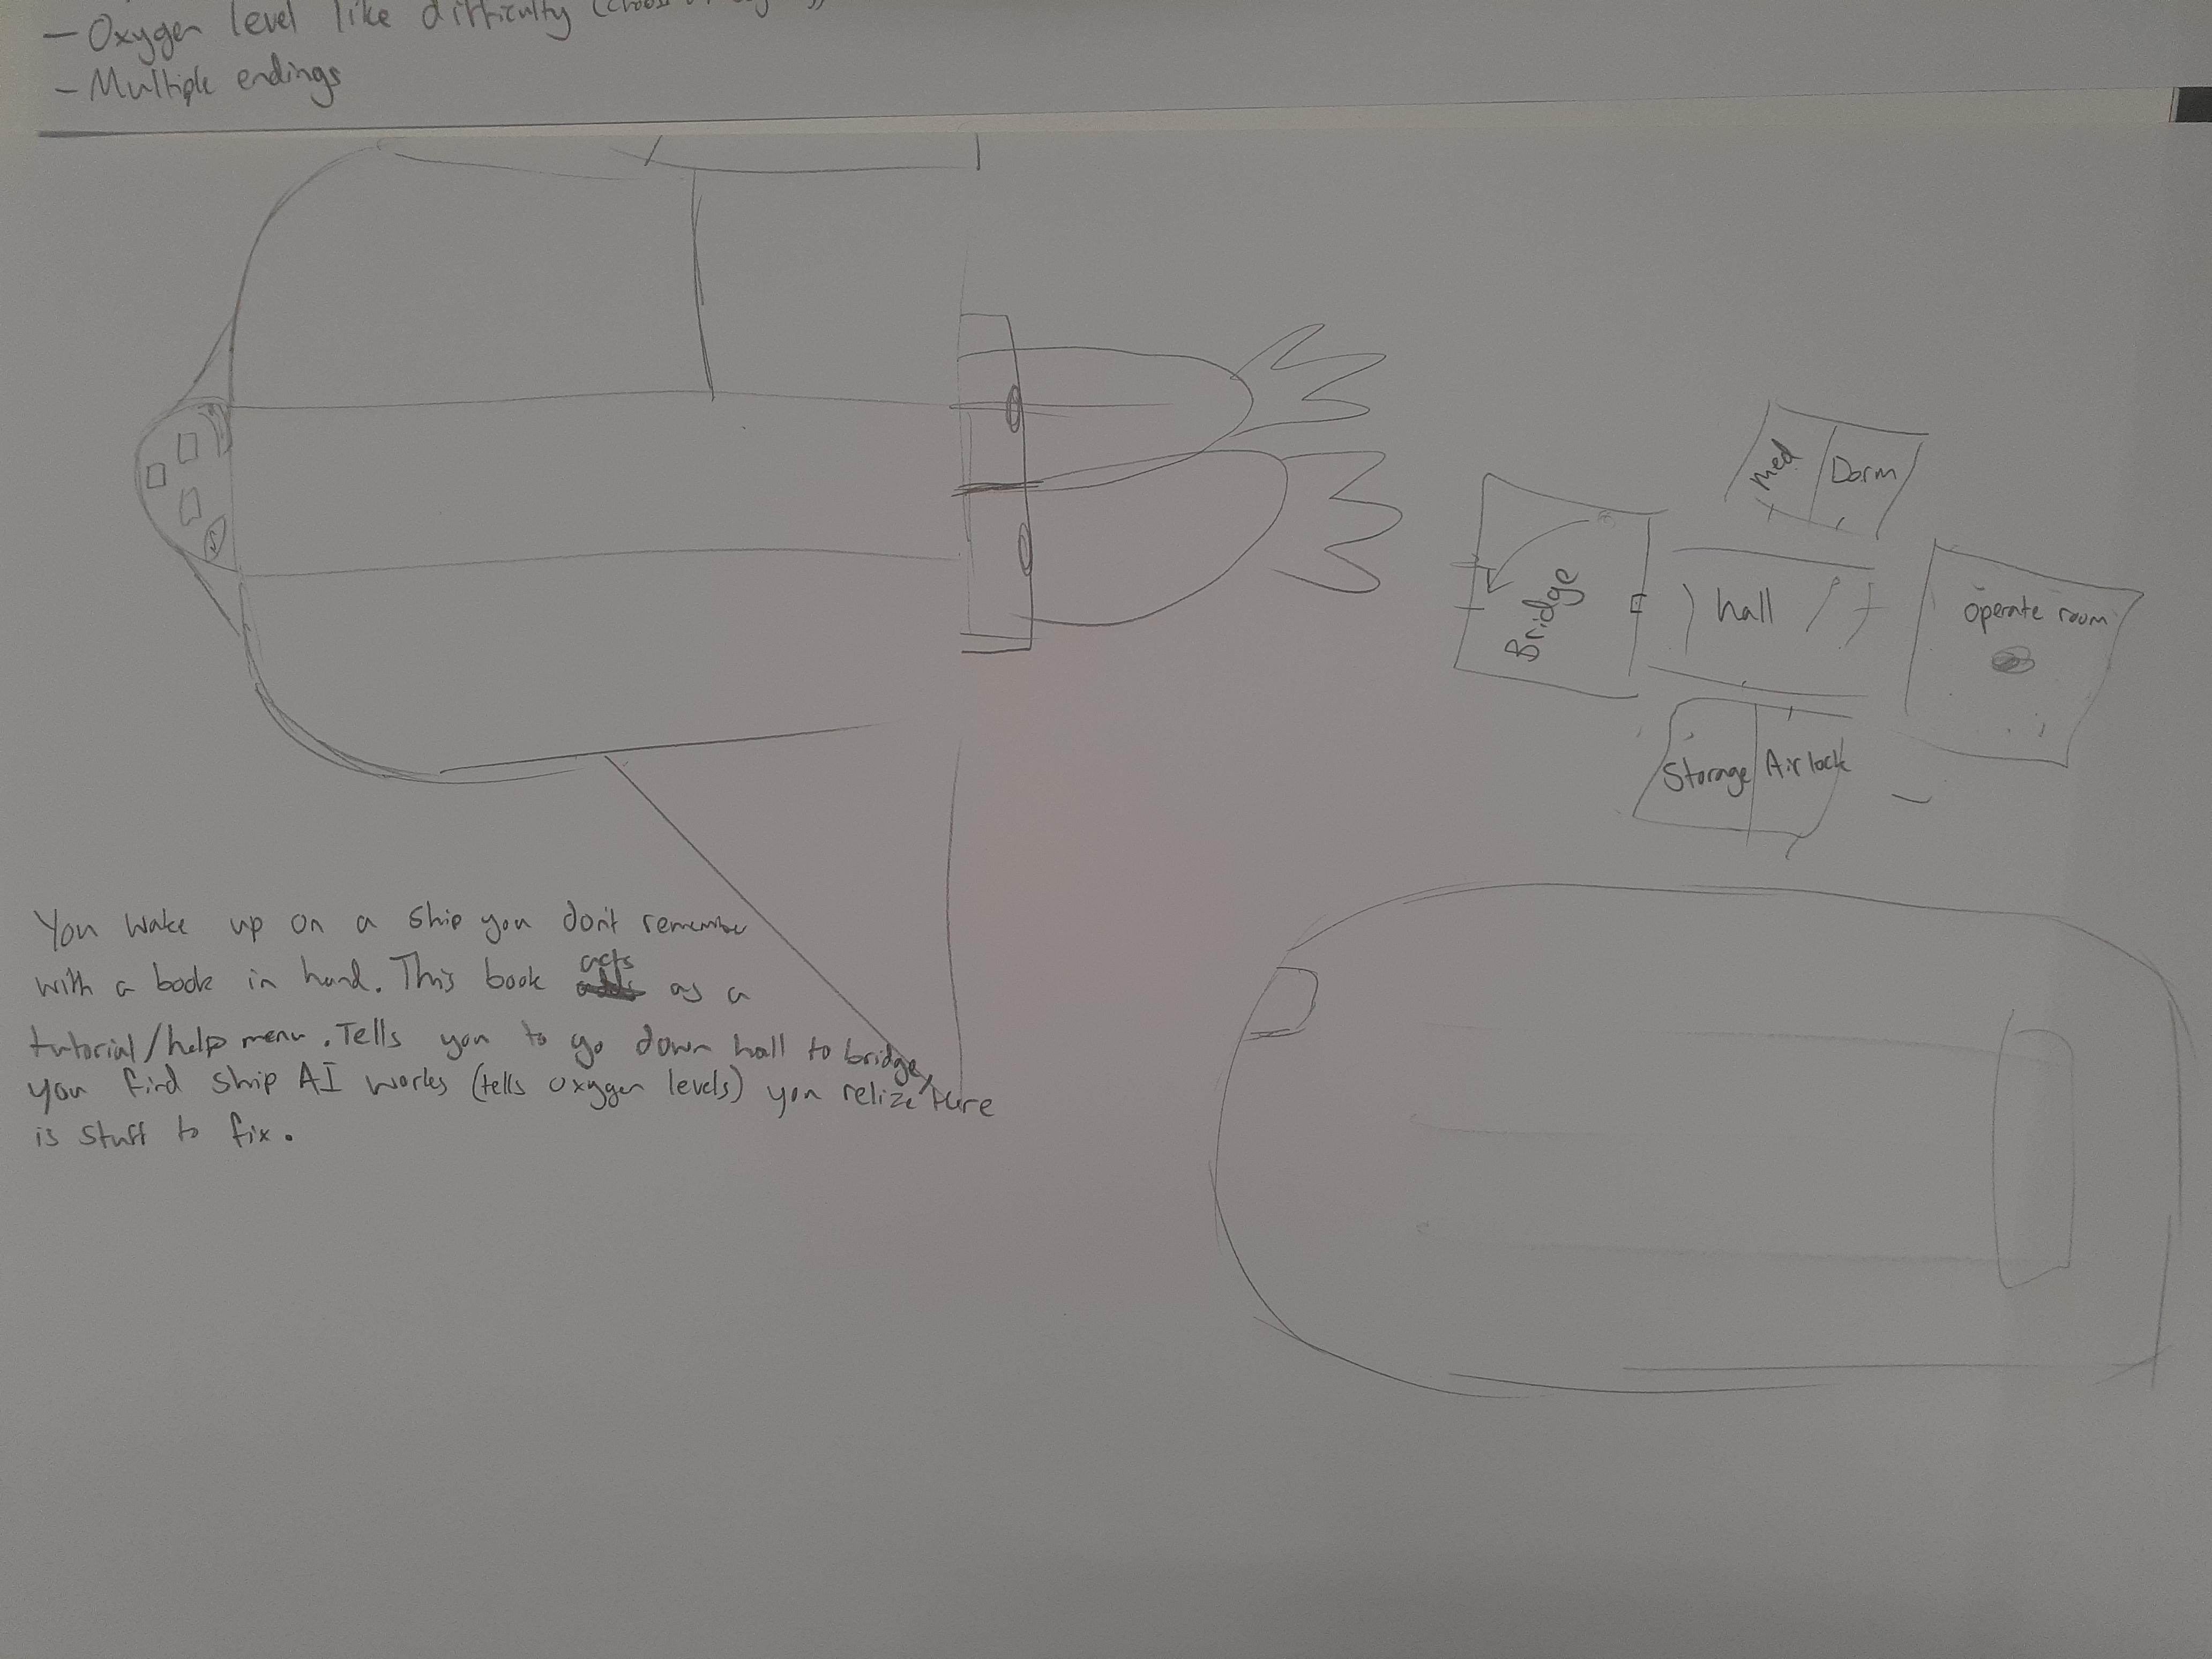 - Oxygen level like difficulty
- Multiple endings
Med
Dorm
Bridge
hall
Operate room
Storage
Air lock
You wake up on a ship you don't remember
with a book in hand. This book acts as a
tutorial/help menu. Tells you to go down hall to bridge,
you find ship AI works (tells oxygen levels) you relize there
is stuff to fix.